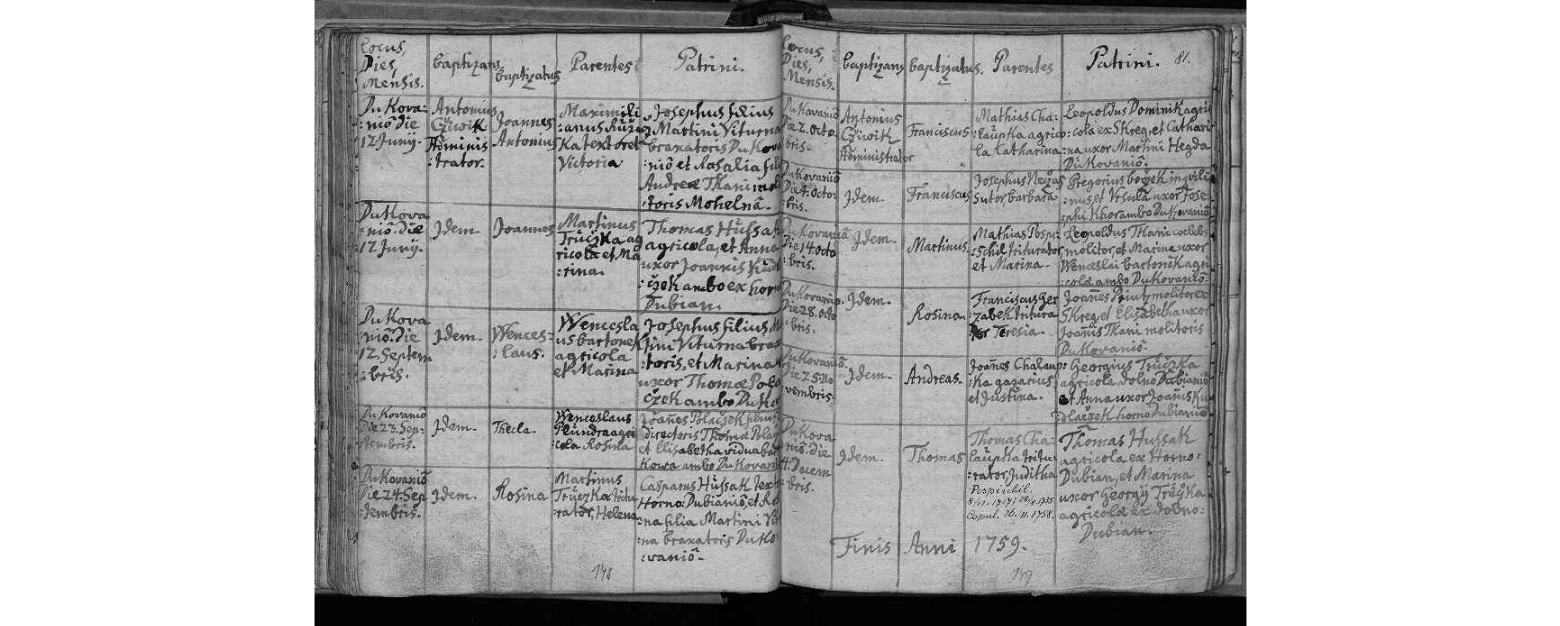 Locus, Dies, Mensis.
baptizans
baptizatus
Parentes
Patrini.
Dukova:
:niõ die
12 Juny.
Antonius
Czüvik
Adminis
:trator.
Joannes
Antonius
Maximili
:anus
Ka textor et
Victoria
Josephus filius
Martini Viturna
braxatoris Dukova
:niõ et Rosalia fil
Andreæ Thani mol
:toris Mohelnã.
Dukova
:niõ die
17 Junÿ.
Jdem.
Joannes
Martinus
Truczka ag
ricola et Ma
:rina.
Thomas Hüssak
agricola, et Anna
uxor Joannis Kud
:czek ambo ex horn
Dubian.
Dukova
:niõ die
12 Septem
:bris.
Jdem.
Wences:
:laus.
Wencesla
us bartonek
agricola
et Marina
Josephus filius M
Viturna brax
:toris, et Marina
uxor Thomæ Pola
czek ambo Duko
Dukovaniõ
Die 23. Sep:
tembris.
Jdem.
Thecla.
Wenceslaus
Plundra agri
cola Rosina
Joãnes Polaczek filius
directoris Thomæ Pola
et Elisabetha vidua bar
Kowa ambo Dukovani
Dukovaniõ
Die 24. Sep
tembris.
Jdem.
Rosina
Martinus
Truczka tritu
rator, Helena
Casparus Hüssak tex
Horno: Dubianiõ, et Ro
:na filia Martini Vi
:na braxatoris Duko
:vaniõ.
148
Locus,
Dies,
Mensis.
baptizans
baptizatus.
Parentes
Patrini.
81.
Dukovaniõ
Die 2. octo
bris.
Antonius
Czüvik
Administrator
Franciscus
Mathias Cha:
laupka agrico
la Catharina
Leopoldus Dominik agri
:cola ex Skreg, et Cathari
:na uxor Martini Hegda
Dukovaniõ.
Dukovaniõ
Die 4. octo
bris.
Jdem.
Franciscus
Josephus
sutor barbara
Gregorius bozek inqvili
nus et Ursula uxor Jose
:phi Khor ambo Dukovaniõ
Dukovaniã
Die 14. octo
bris.
Jdem.
Martinus.
Mathias Posp:
:schil triturator
et Marina.
Leopoldus Thani cœlebs
molitor, et Marina uxor
Wenceslai bartonek agri
:colæ ambo Dukovaniõ.
Dukovaniõ.
Die 28. octo
bris.
Jdem.
Rosina.
Franciscus Ger
zabek tritura
Teresia.
Joãnes molitor ex
Skreg et Elisabetha uxor
Joãnis Thani molitoris
Dukovaniõ.
Dukovaniõ.
Die 25 No
vembris.
Jdem.
Andreas.
Joãnes Chalaup:
:ka gazarius
et Justina.
Georgius Truczka
agricola dolno Dubianiõ
et Anna uxor Joãnis Ku
dlaczek horno Dubianiõ
Dukova
:niõ. die
4. Decem
bris.
Jdem.
Thomas
Thomas Cha:
laupka tritu
:rator Juditha
Pospischil.
Copul. 26./11. 1758.
Thomas Hussak
agricola ex Horno:
Dubian, et Marina
uxor Georgÿ Truczka
agricolæ ex dolno:
Dubian.
Finis Anni 1759.
149